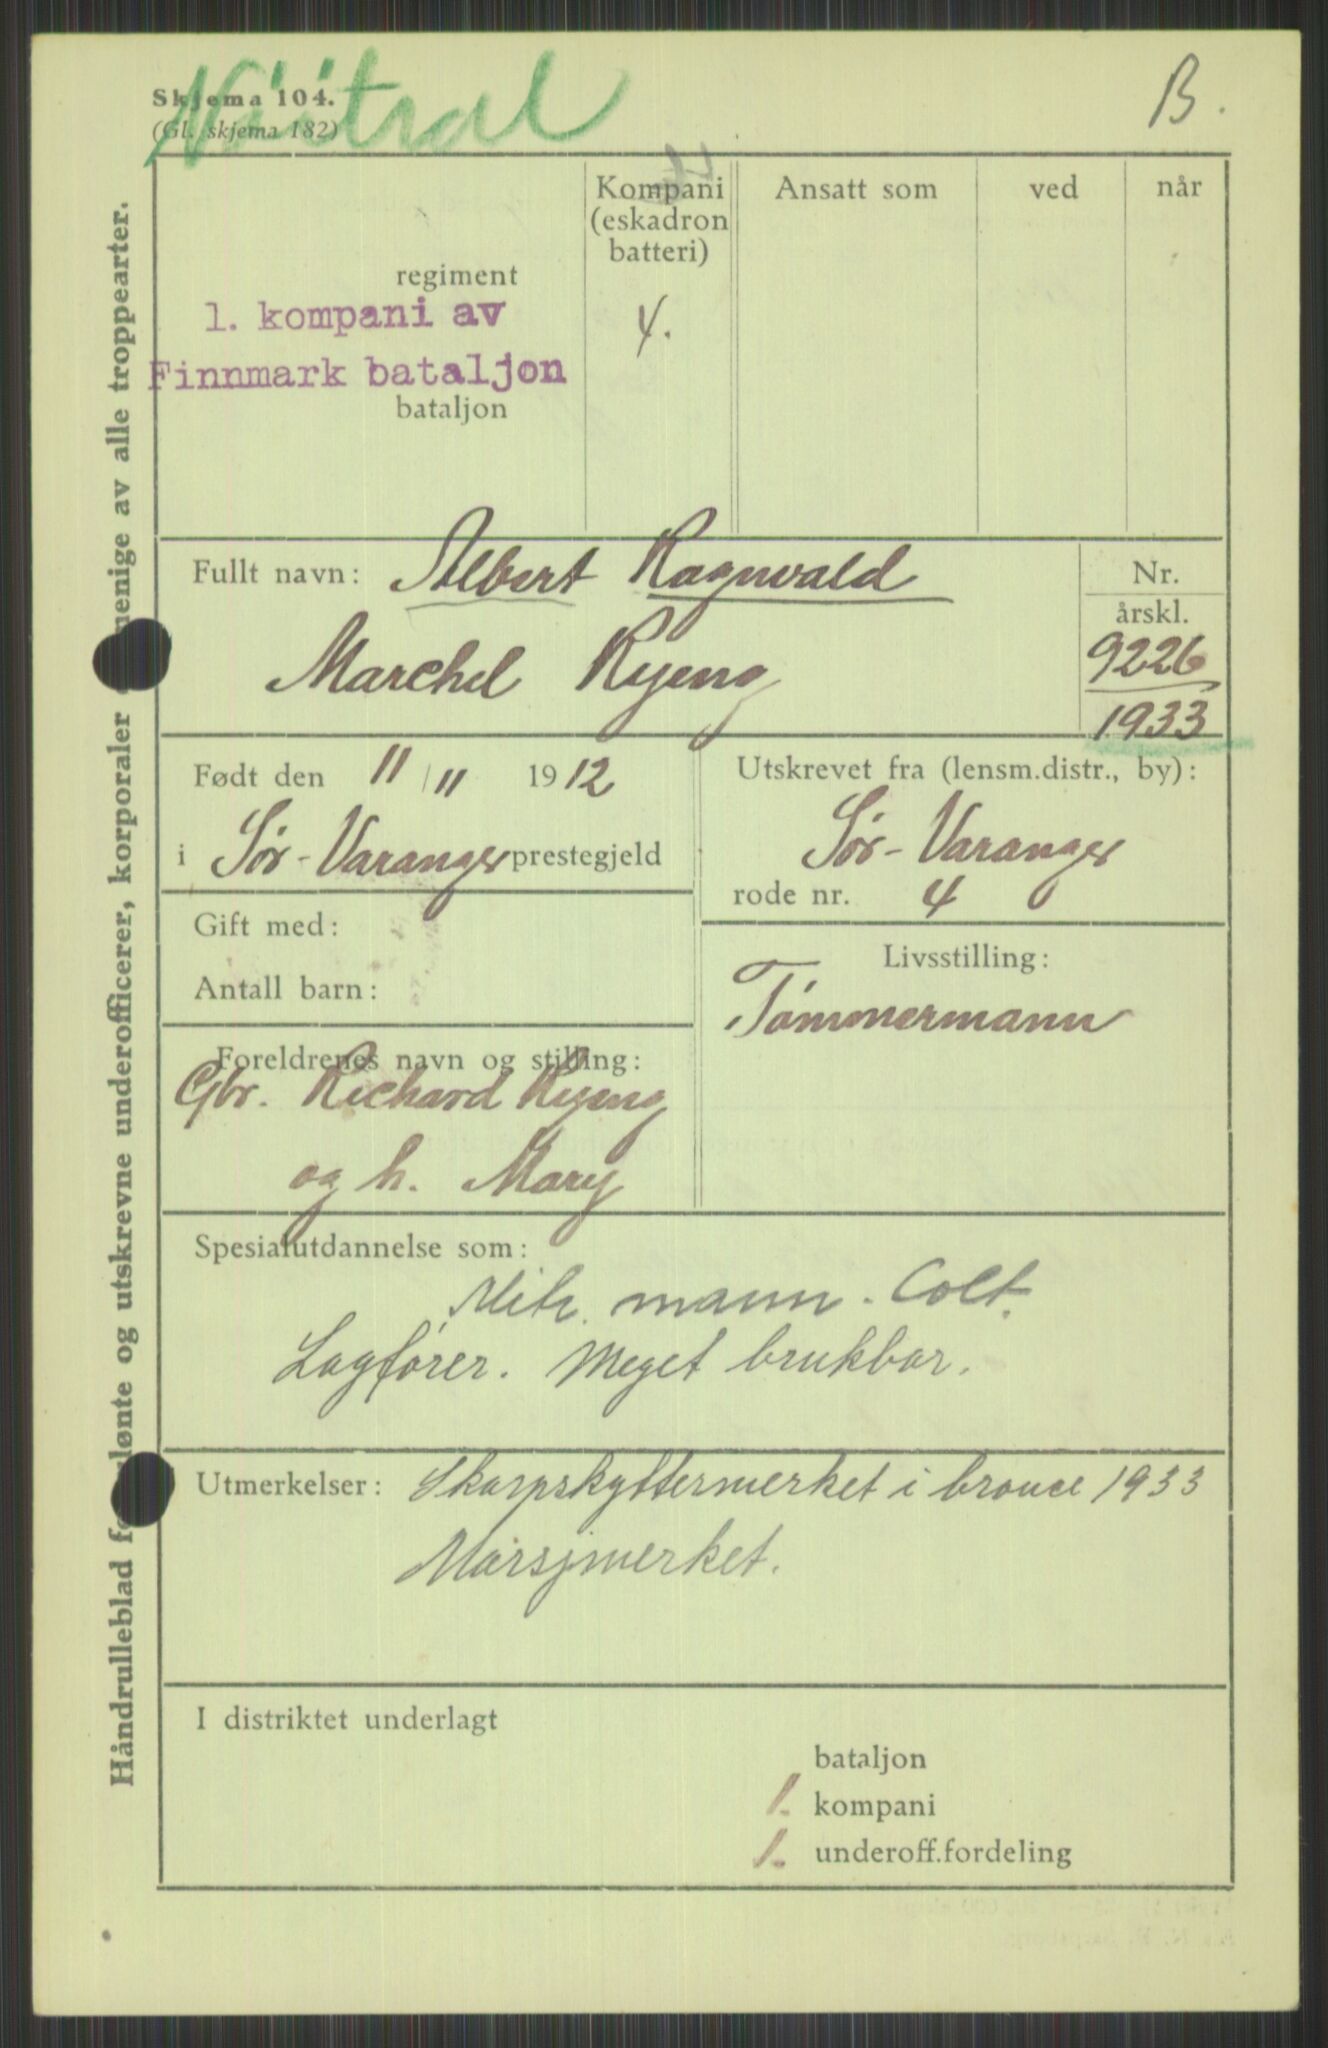 Skjema 104.
(Gl. skjema 182)
Nøitral
B.
Håndrulleblad for lønte og utskrevne underofficerer, korporaler menige av alle troppearter.
Kompani
(eskadron
batteri)
Ansatt som
ved
når
regiment
1. kompani av
Finnmark bataljon
bataljon
4.
Fullt navn: Albert Ragnvald
Marchel Ryeng
Nr.
årskl.
9226
1933
Født den 11/11 1912
i Sør-Varanger prestegjeld
Utskrevet fra (lensm.distr., by):
Sør-Varanger
rode nr. 4
Gift med:
Antall barn:
Livsstilling:
Tømmermann
Foreldrenes navn og stilling:
Gbr. Richard Ryeng
og h. Mary
Spesialutdannelse som:
Mitr. mann. Colt.
Lagfører. Meget brukbar.
Utmerkelser: Skarpskyttermerket i bronce 1933
Marsjmerket.
I distriktet underlagt
bataljon
1. kompani
1. underoff.fordeling